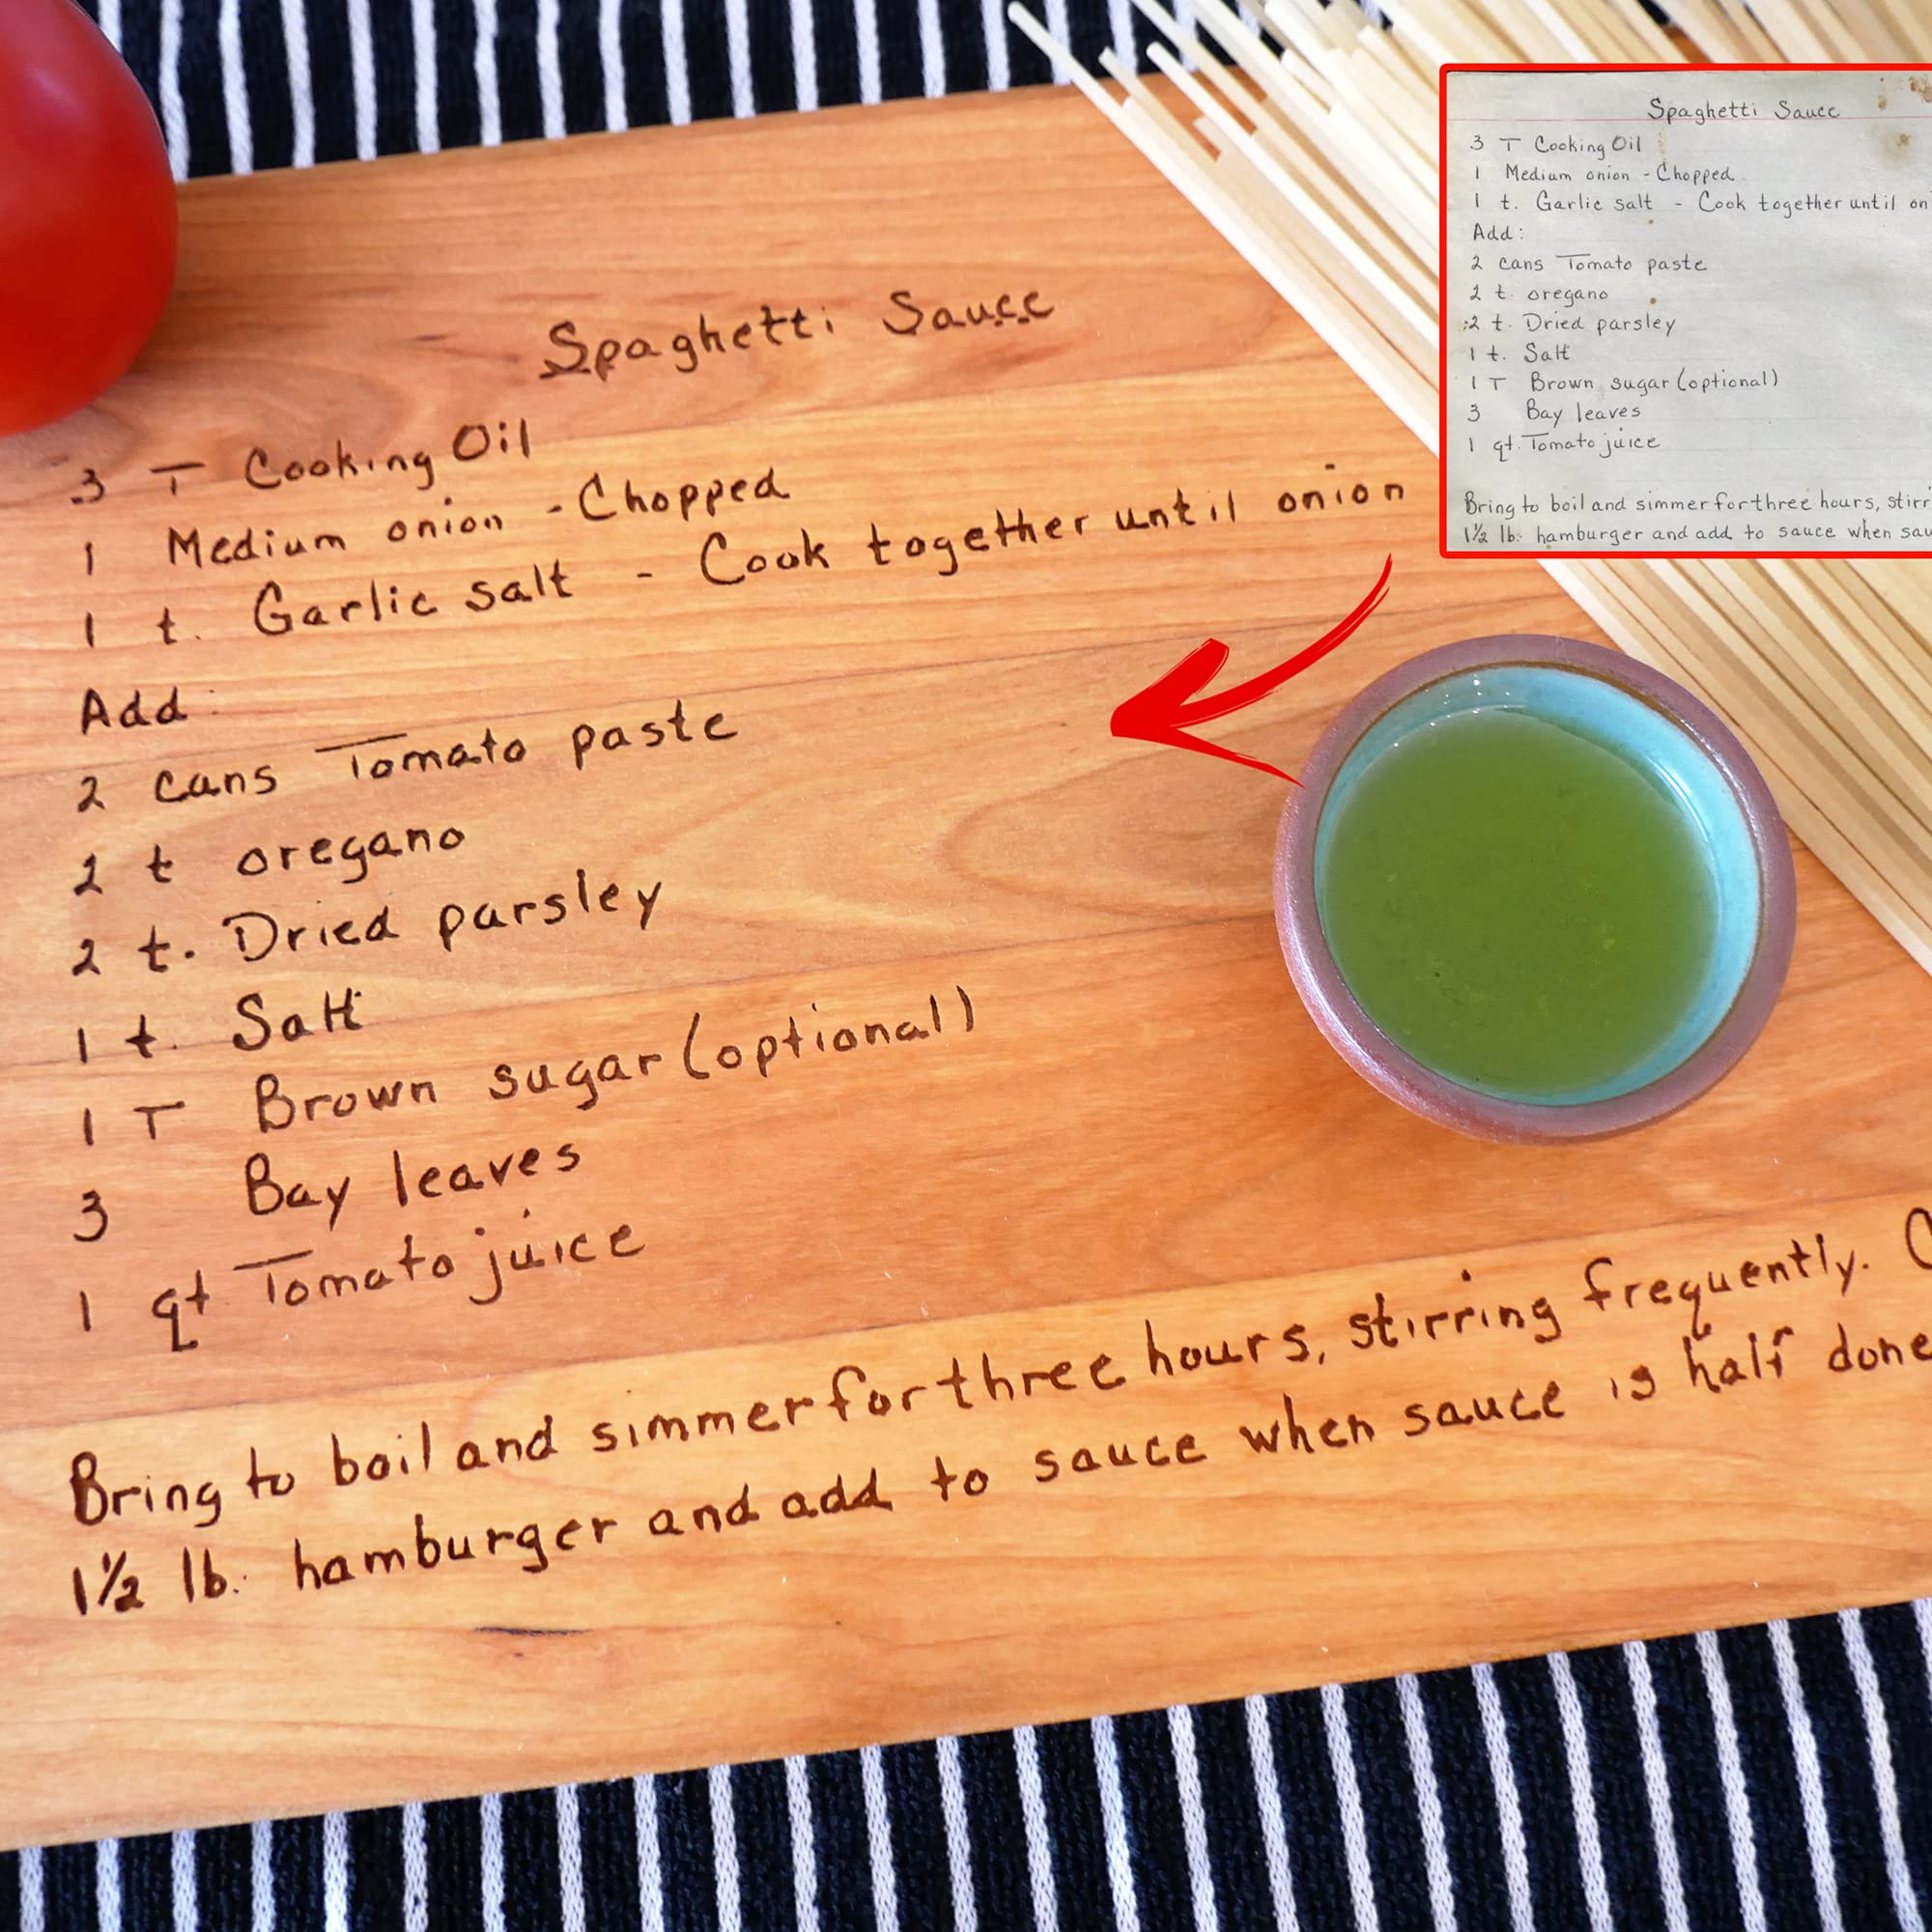 Spaghetti Sauce
3 T Cooking Oil
1 Medium onion - Chopped
1 t. Garlic salt - Cook together until onion
Add:
2 cans Tomato paste
2 t oregano
2 t. Dried parsley
1 t. Salt
1 T Brown sugar (optional)
3 Bay leaves
1 qt Tomato juice
Bring to boil and simmer for three hours, stirring frequently.
1½ lb. hamburger and add to sauce when sauce is half done
Spaghetti Sauce
3 T Cooking Oil
1 Medium onion - Chopped
1 t. Garlic salt - Cook together until on
Add:
2 cans Tomato paste
2 t. oregano
2 t. Dried parsley
1 t. Salt
1 T Brown sugar (optional)
3 Bay leaves
1 qt. Tomato juice
Bring to boil and simmer for three hours, stirr
1½ lb. hamburger and add to sauce when sau